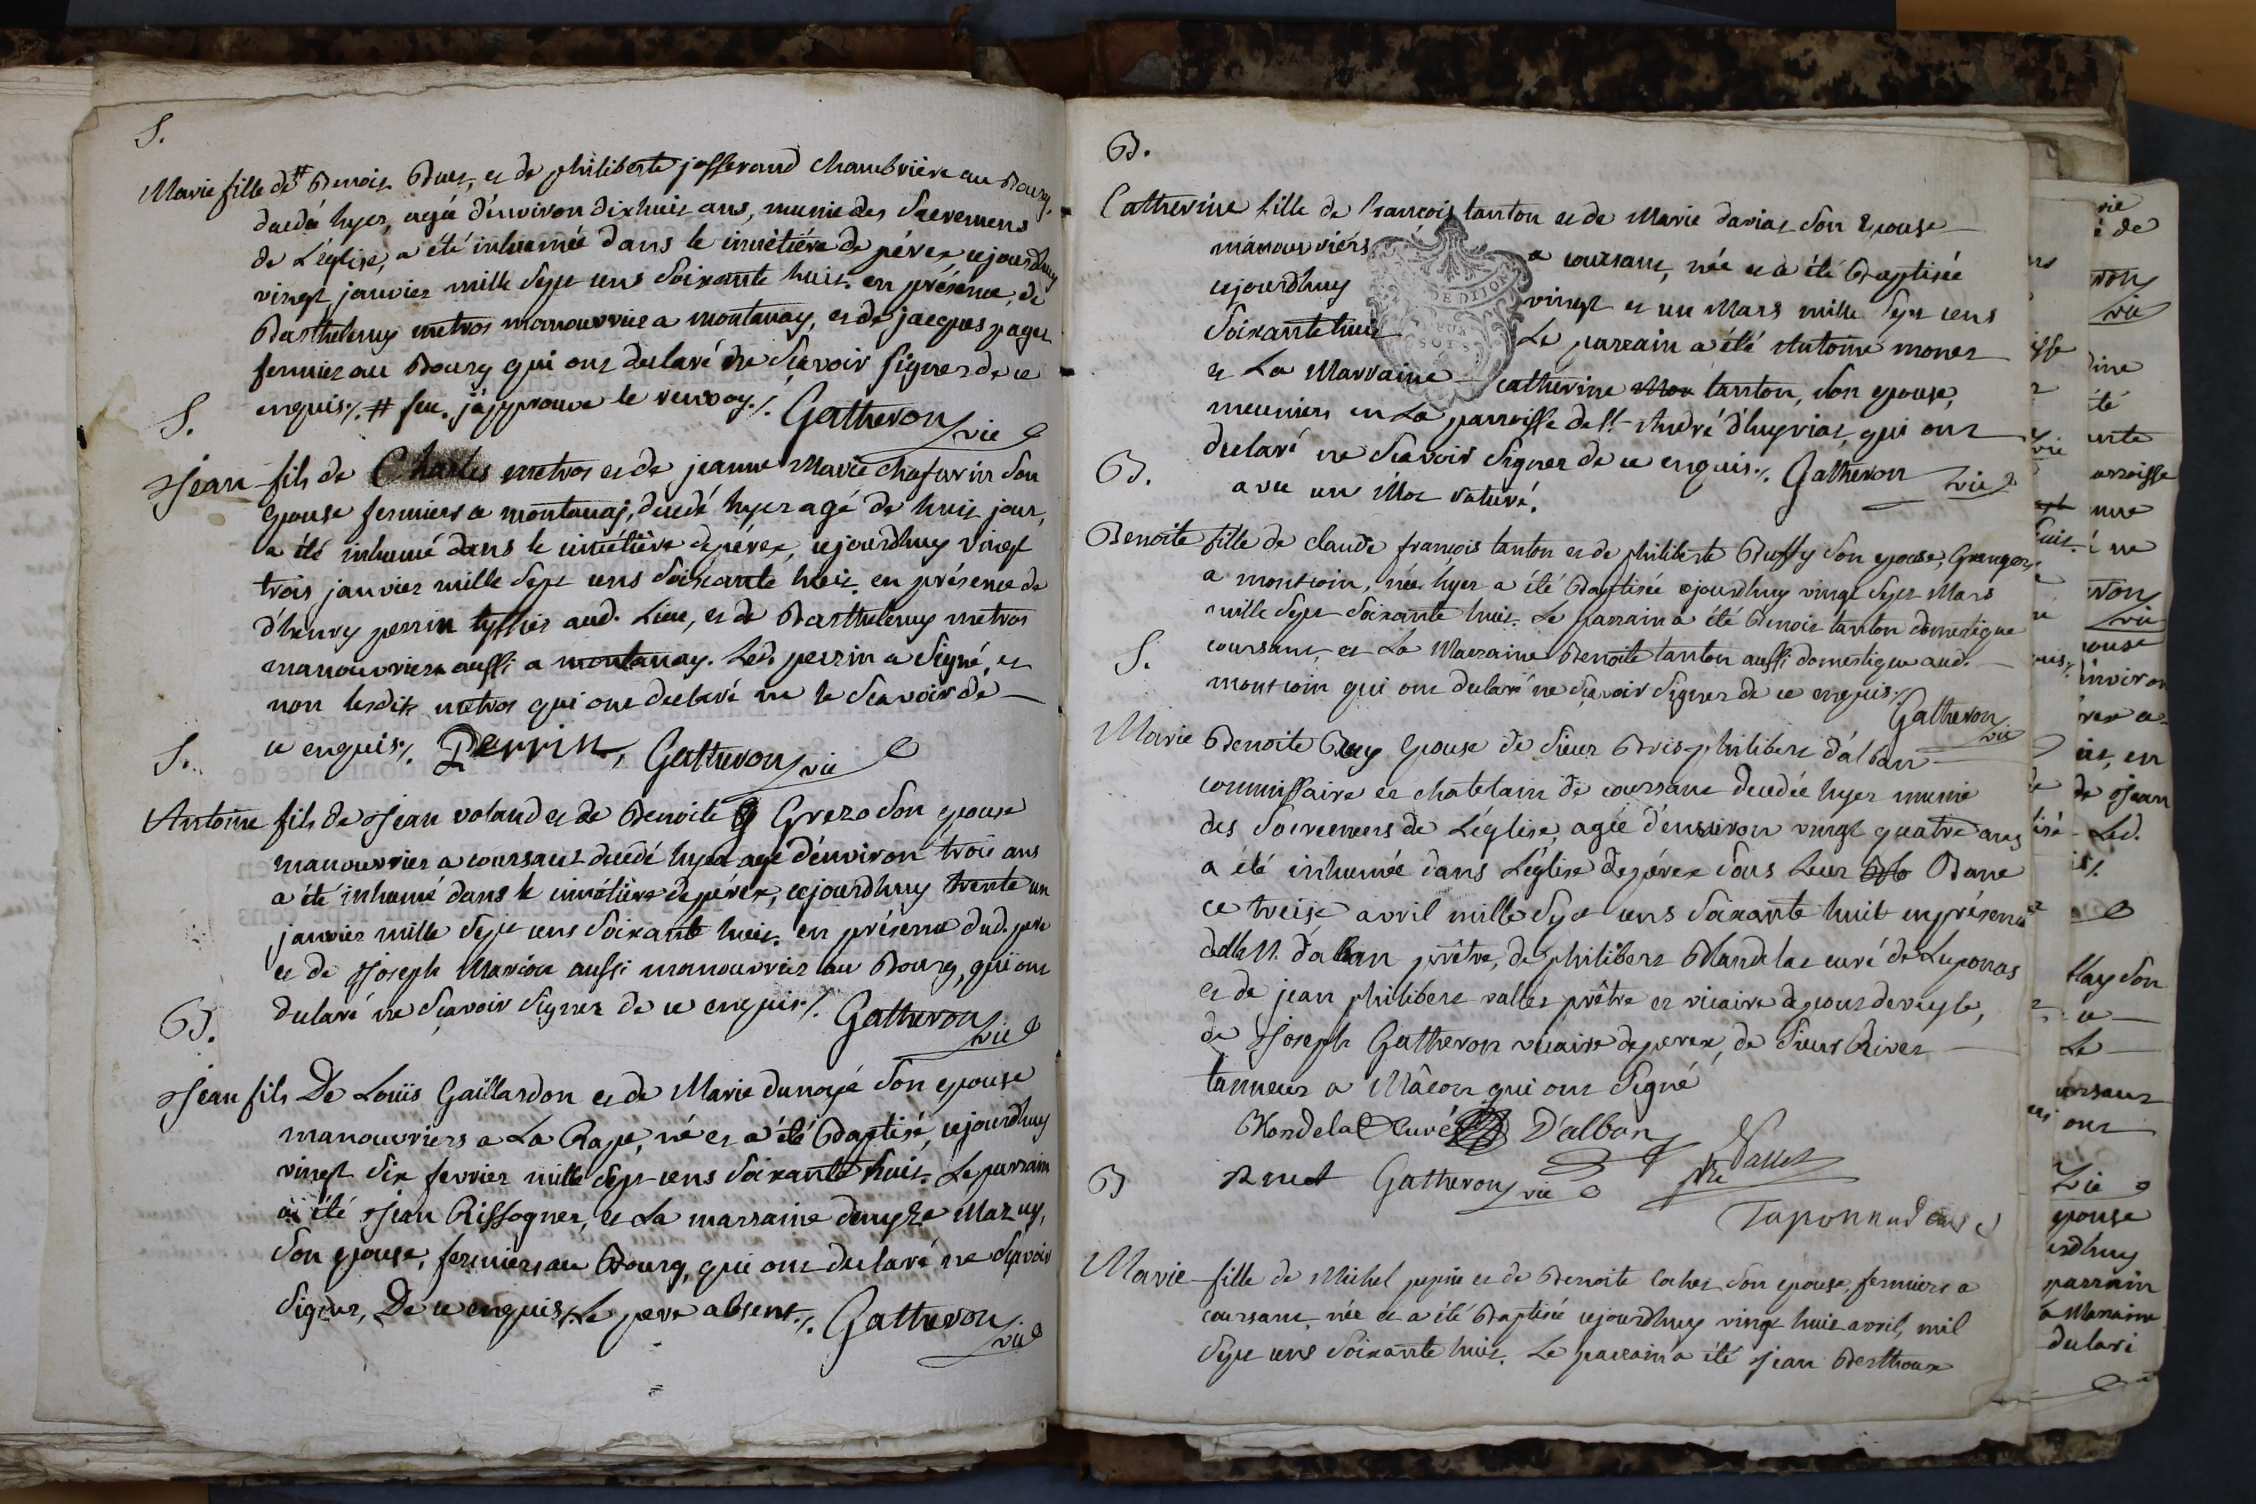 S.
Marie fille de # Benoit Buet, et de philiberte josserand chambriere au Bourg,
decedée hyer, agée d'environ dixhuit ans, munie des Sacremens
de L'église, a été inhumée dans le cimétiére de pérex cejourdhuy
vingt janvier mille Sept cens Soixante huit. en présence, de
Barthelemy metros manouvrier a montanay, et de jacques pages
fermier au Bourg qui ont declaré ne Scavoir Signer de ce
enquis./. # feu. j'approuve le renvoy./. Gatheron vic
S.
Jean fils de Charles metros et de jeanne Marie chafarin Son
Epouse fermiers a montanaj, decedé hyer agé de huit jour,
a été inhumé dans le cimétiére de pérex, cejourdhuy vingt
trois janvier mille Sept cens Soixante huit. en présence de
d'henry perrin tissier aud. Lieu, et de Barthelemy metros
manouvrier aussi a montanay. Led. perrin a Signé, et
non lesdits metros qui ont declaré ne le Scavoir de
ce enquis./. Perrin, Gatheron vic
S.
Antoine fils de Jean voland et de Benoite Grezo Son epouse
manouvrier a coursant decedé hyer agé d'environ trois ans
a été inhumé dans le cimétiére de pérex, cejourdhuy trente un
janvier mille Sept cens Soixante huit. en présence dud. pere
et de Joseph Marion aussi manouvrier au Bourg, qui ont
declaré ne Scavoir Signer de ce enquis./. Gatheron vic
B.
Jean fils De Loüis Gaillardon et de Marie dunoyé Son epouse
manouvriers a La Rape, né et a été Baptisé, cejourdhuy
vingt Six fevrier mille Sept cens Soixante huit. Le parrain
a été Jean Rissogner, et La marraine denyse Mazuy,
Son epouse, fermiers au Bourg, qui ont declaré ne Scavoir
Signer, De ce enquis. Le pere absent./. Gatheron vic
B.
Catherine fille de francois tanton et de Marie daviat Son Epouse
manouvriers a coursant, née et a été Baptisée
cejourdhuy vingt et un Mars mille Sept cens
DE DIJON
Soixante huit Le parrain a été Antoine monet
et La Marraine catherine tanton, Son epouse,
meuniers en La parroisse de St. André d'huyriat, qui ont
declaré ne Scavoir Signer de ce enquis./. Gatheron vic
avec un Mot raturé.
B.
Benoite fille de claude françois tanton et de philiberte Buffy Son epouse, Grangers
a montcoin, née hyer a été Baptisée cejourdhuy vingt Sept Mars
mille Sept Soixante huit. Le parrain a été Benoit tanton domestique
coursant, et La Marraine Benoite tanton aussi domestique aud.
montcoin qui ont declaré ne Scavoir Signer de ce enquis./.
Gatheron vic
S.
Marie Benoite Epouse de Sieur philibert d'alban
commissaire et chatelain de coursant decedée hyer munie
des Sacremens de L'église, agée d'environ vingt quatre ans
a été inhumée dans L'église de pérex Sous Leur Banc
ce treise avril mille Sept cens Soixante huit en présence
d'alban prêtre, de philibert Blandelat curé de Luponas
et de jean philibert vallet prêtre et vicaire de pont deveyle,
de Joseph Gatheron vicaire de perex, de Sieur Rivet
tanneur a Mâcon qui ont Signé
Blondelat Curé D'alban
Gatheron vic Vallet ptre
Taponnud
B
Marie fille de Michel pepin et de Benoite Cochet Son epouse, fermiers a
coursant, née et a été Baptisée cejourdhuy vingt huit avril, mil
Sept cens Soixante huit. Le parrain a été Jean Berthoux